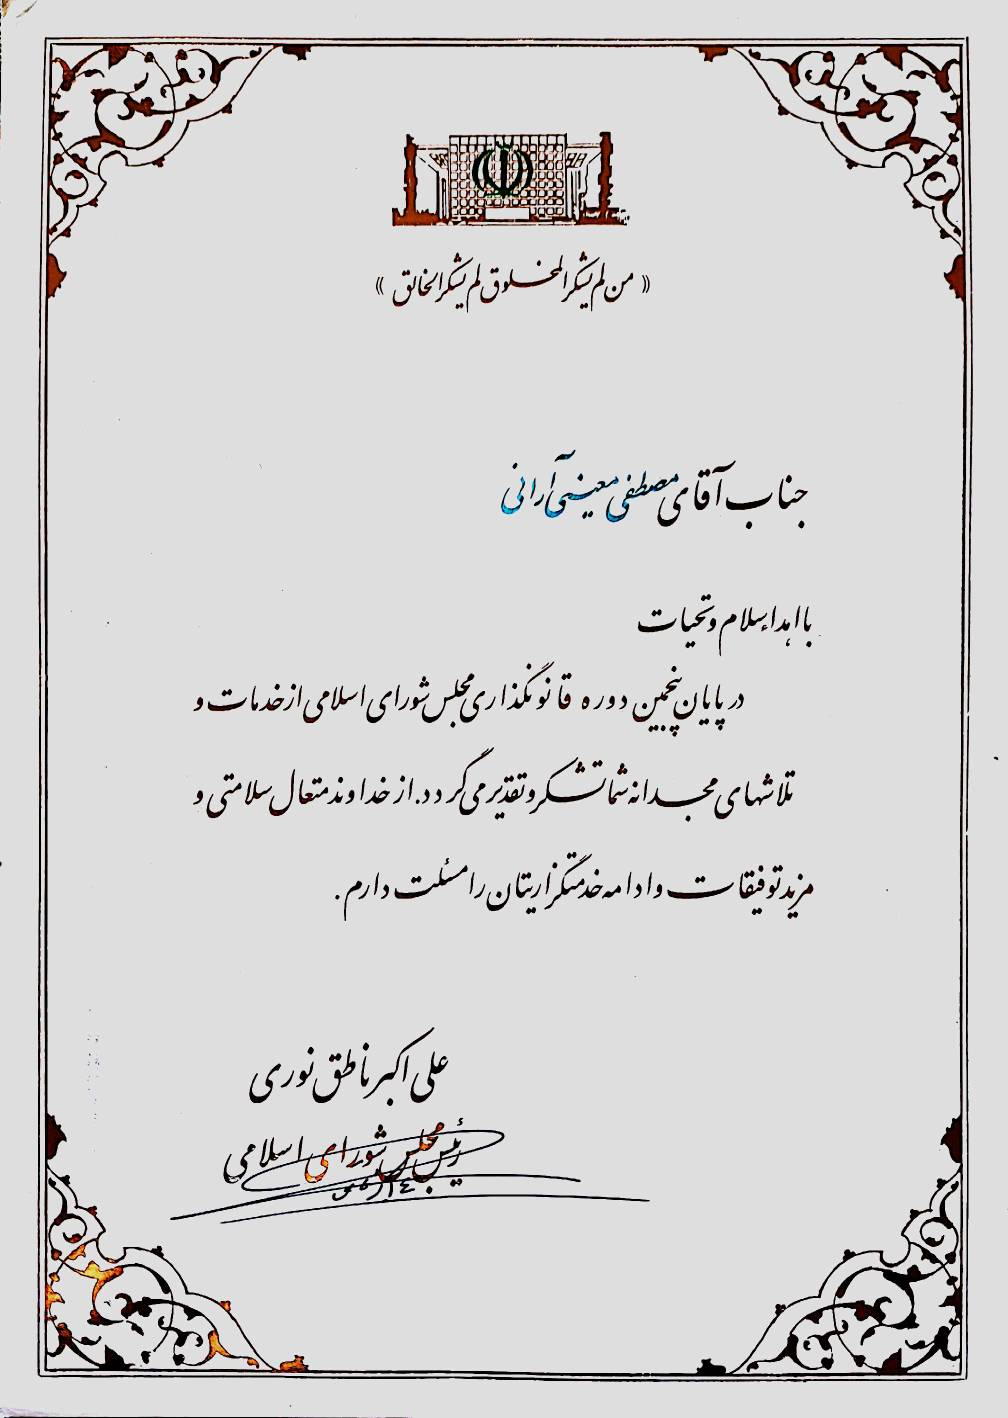 « من لم یشکر المخلوق لم یشکر الخالق »
جناب آقای مصطفی معینی آرانی
با اهداء سلام و تحیات
در پایان پنجمین دوره قانونگذاری مجلس شورای اسلامی از خدمات و
تلاشهای مجدانه شما تشکر و تقدیر می گردد. از خداوند متعال سلامتی و
مزید توفیقات و ادامه خدمتگزاریتان را مسئلت دارم.
علی اکبر ناطق نوری
رئیس مجلس شورای اسلامی